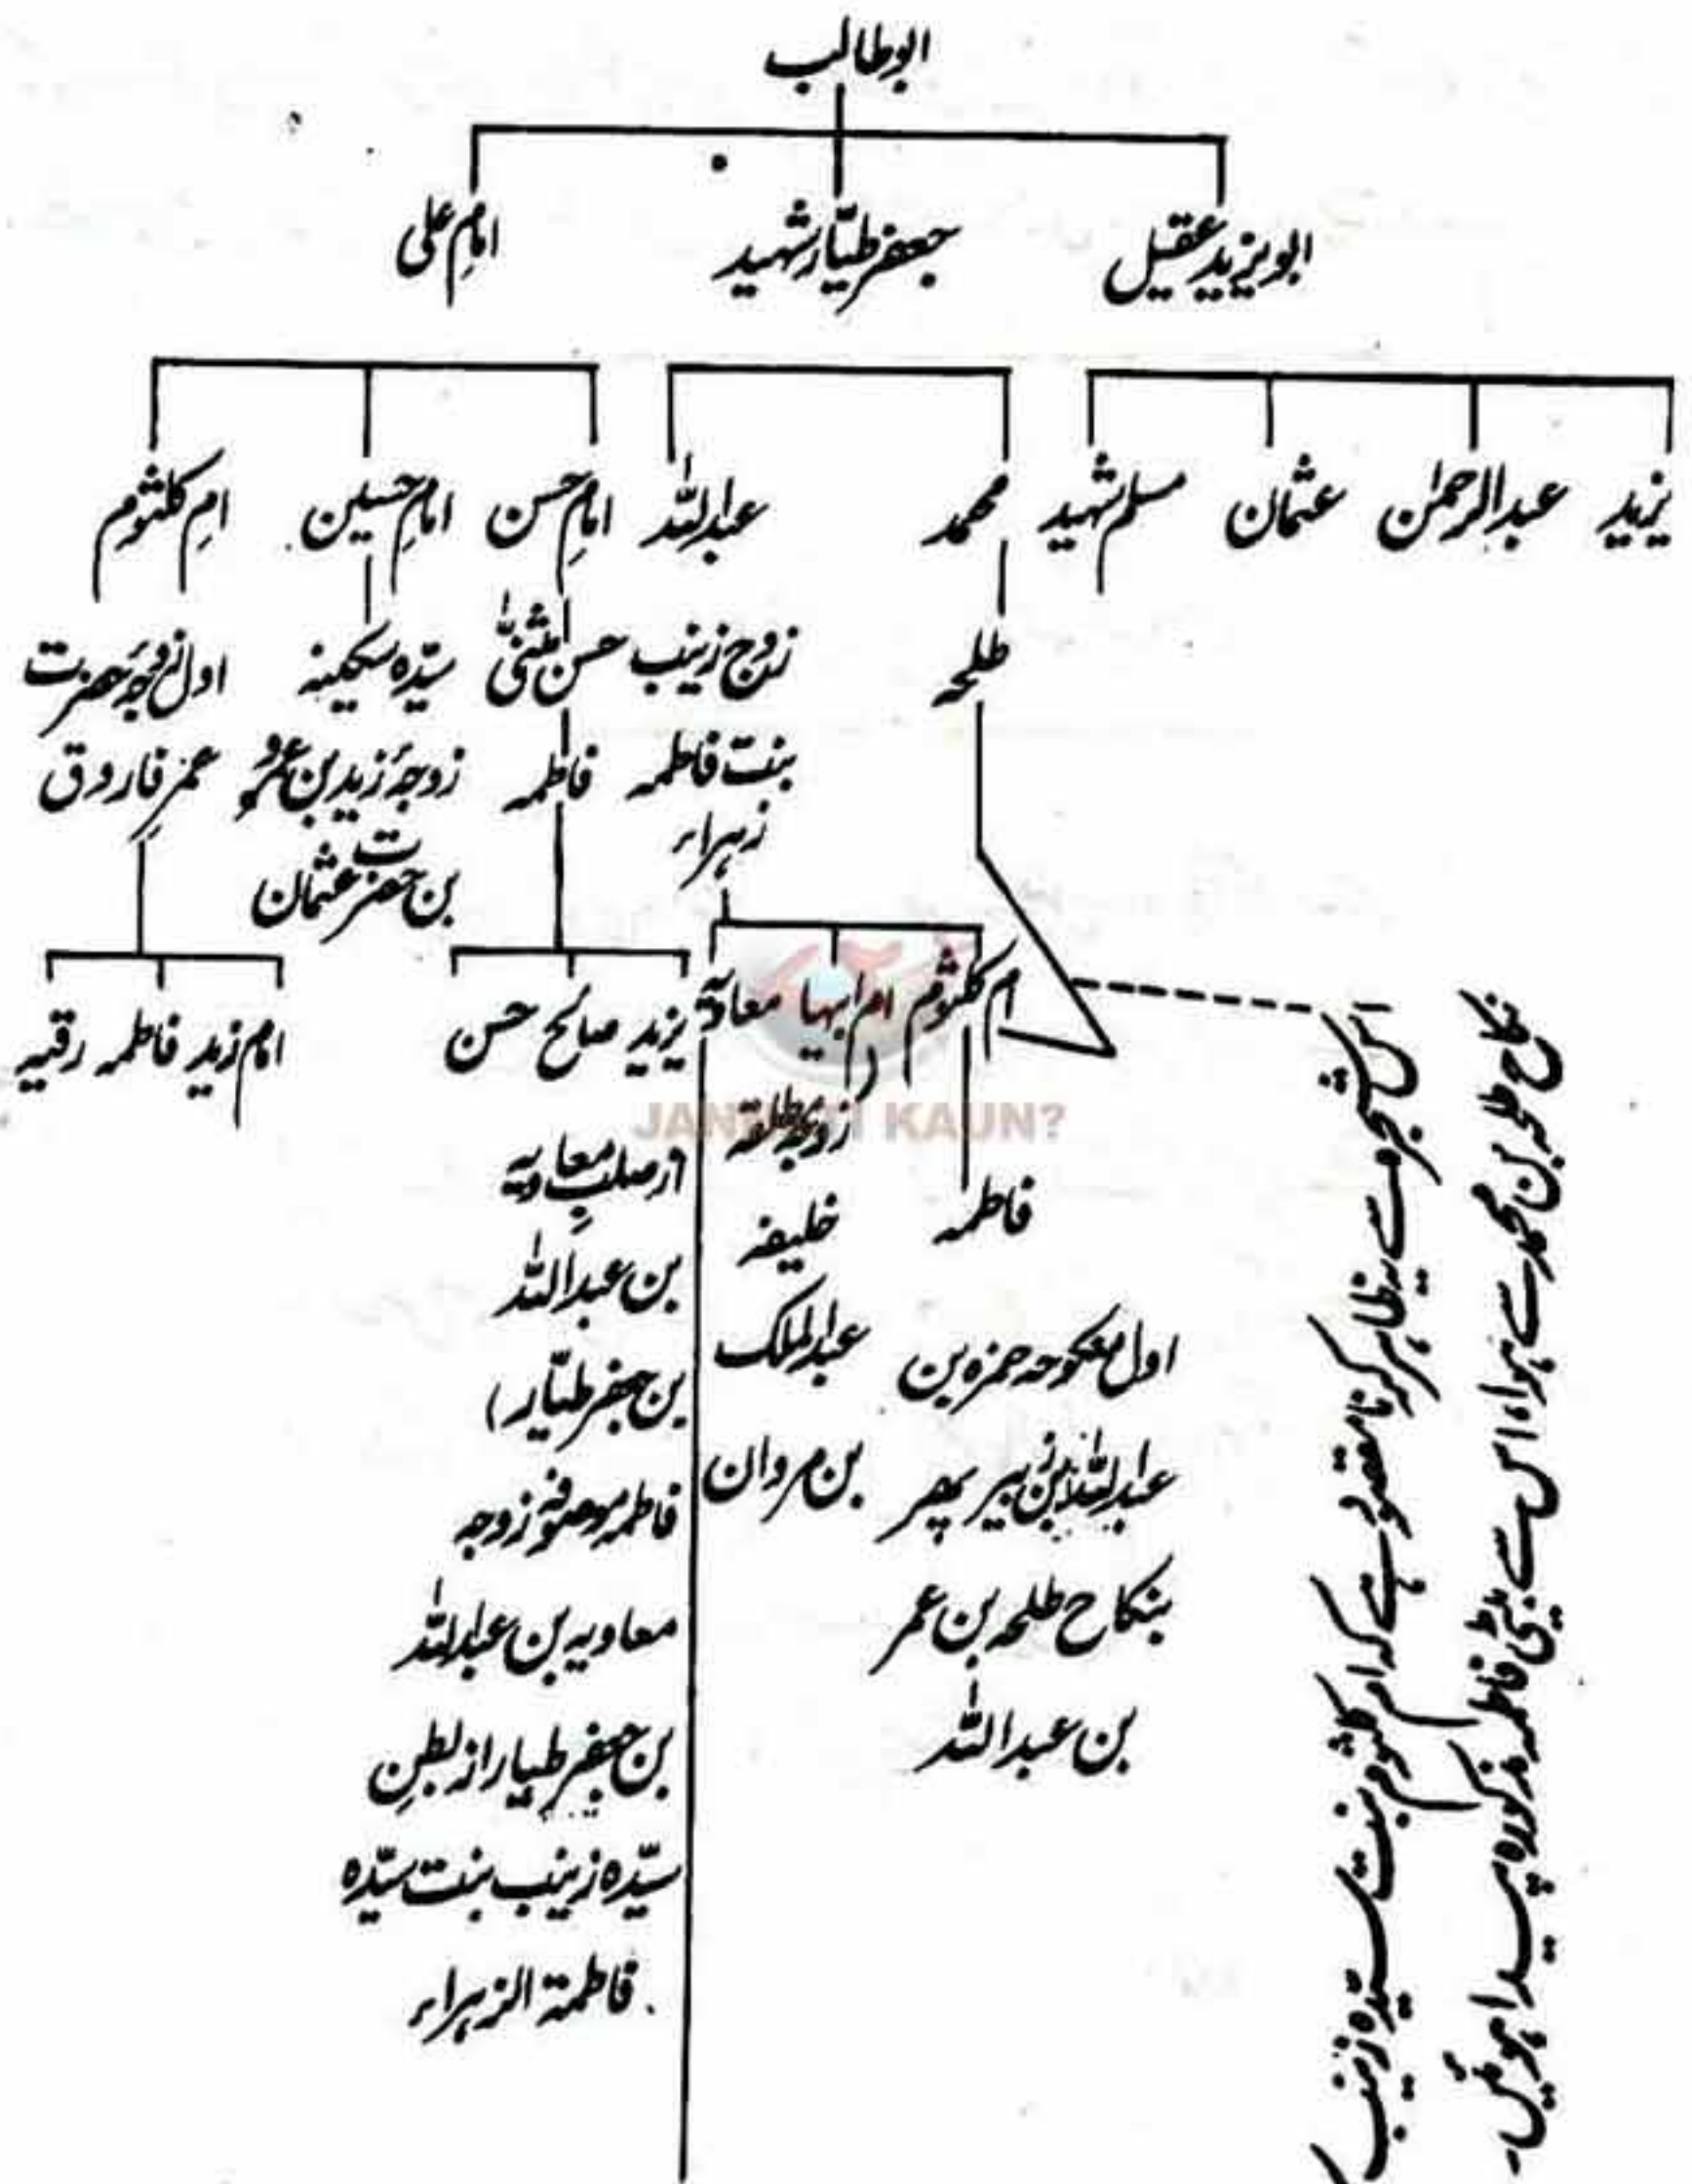 ابوطالب
ابویزید عقیل
جعفر طیّار شہید
امامِ علی
یزید
عبدالرحمٰن
عثمان
مسلم شہید
محمد
عبداللہ
امامِ حسن
امامِ حسین
امِ کلثوم
طلحہ
زوج زینب
بنت فاطمہ
زہراء
حسن مثنیٰ
فاطمہ
سیّدہ سکینہ
زوجۂ زید بن عمرو
بن حضرت عثمان
اول زوجۂ حضرت
عمر فاروق
ام کلثوم
ام ابیہا
معاویہ
یزید صالح حسن
امام زید فاطمہ رقیہ
JANNATI KAUN?
فاطمہ
اول منکوحہ حمزہ بن
عبداللہ ابن زبیر پھر
بنکاح طلحہ بن عمر
بن عبداللہ
زوجہ مطلقہ
خلیفہ
عبدالملک
بن مروان
(از صلبِ معاویہ
بن عبداللہ
بن جعفر طیّار)
فاطمہ موصوفہ زوجہ
معاویہ بن عبداللہ
بن جعفر طیار از بطنِ
سیّدہ زینب بنت سیّدہ
فاطمۃ الزہراء
اس شجرہ سے یہ ظاہر کرنا مقصود ہے کہ ام کلثوم بنت سیّدہ زینب کا
نکاح طلحہ بن محمد سے ہوا، اس سے بیٹی فاطمہ مذکورہ پیدا ہوئیں۔